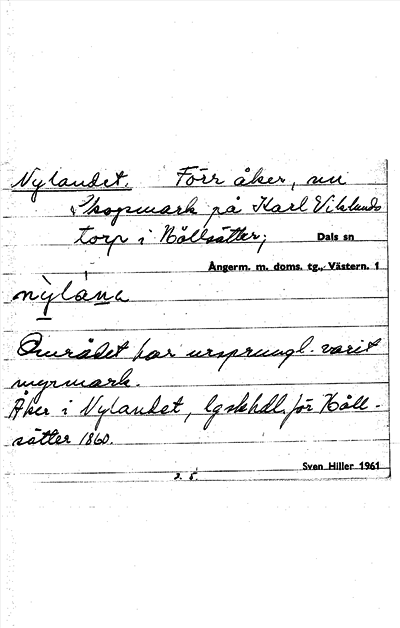 Nylandet. Förr åker, nu
skogsmark på Karl Viklunds
torp i Hållsätter;
Dals sn
Ångerm. m. doms. tg., Västern. 1
Området har ursprungl. varit
myrmark.
Åker i Nylandet, lgskhdl. för Håll-
sätter 1860.
Sven Hiller 1961